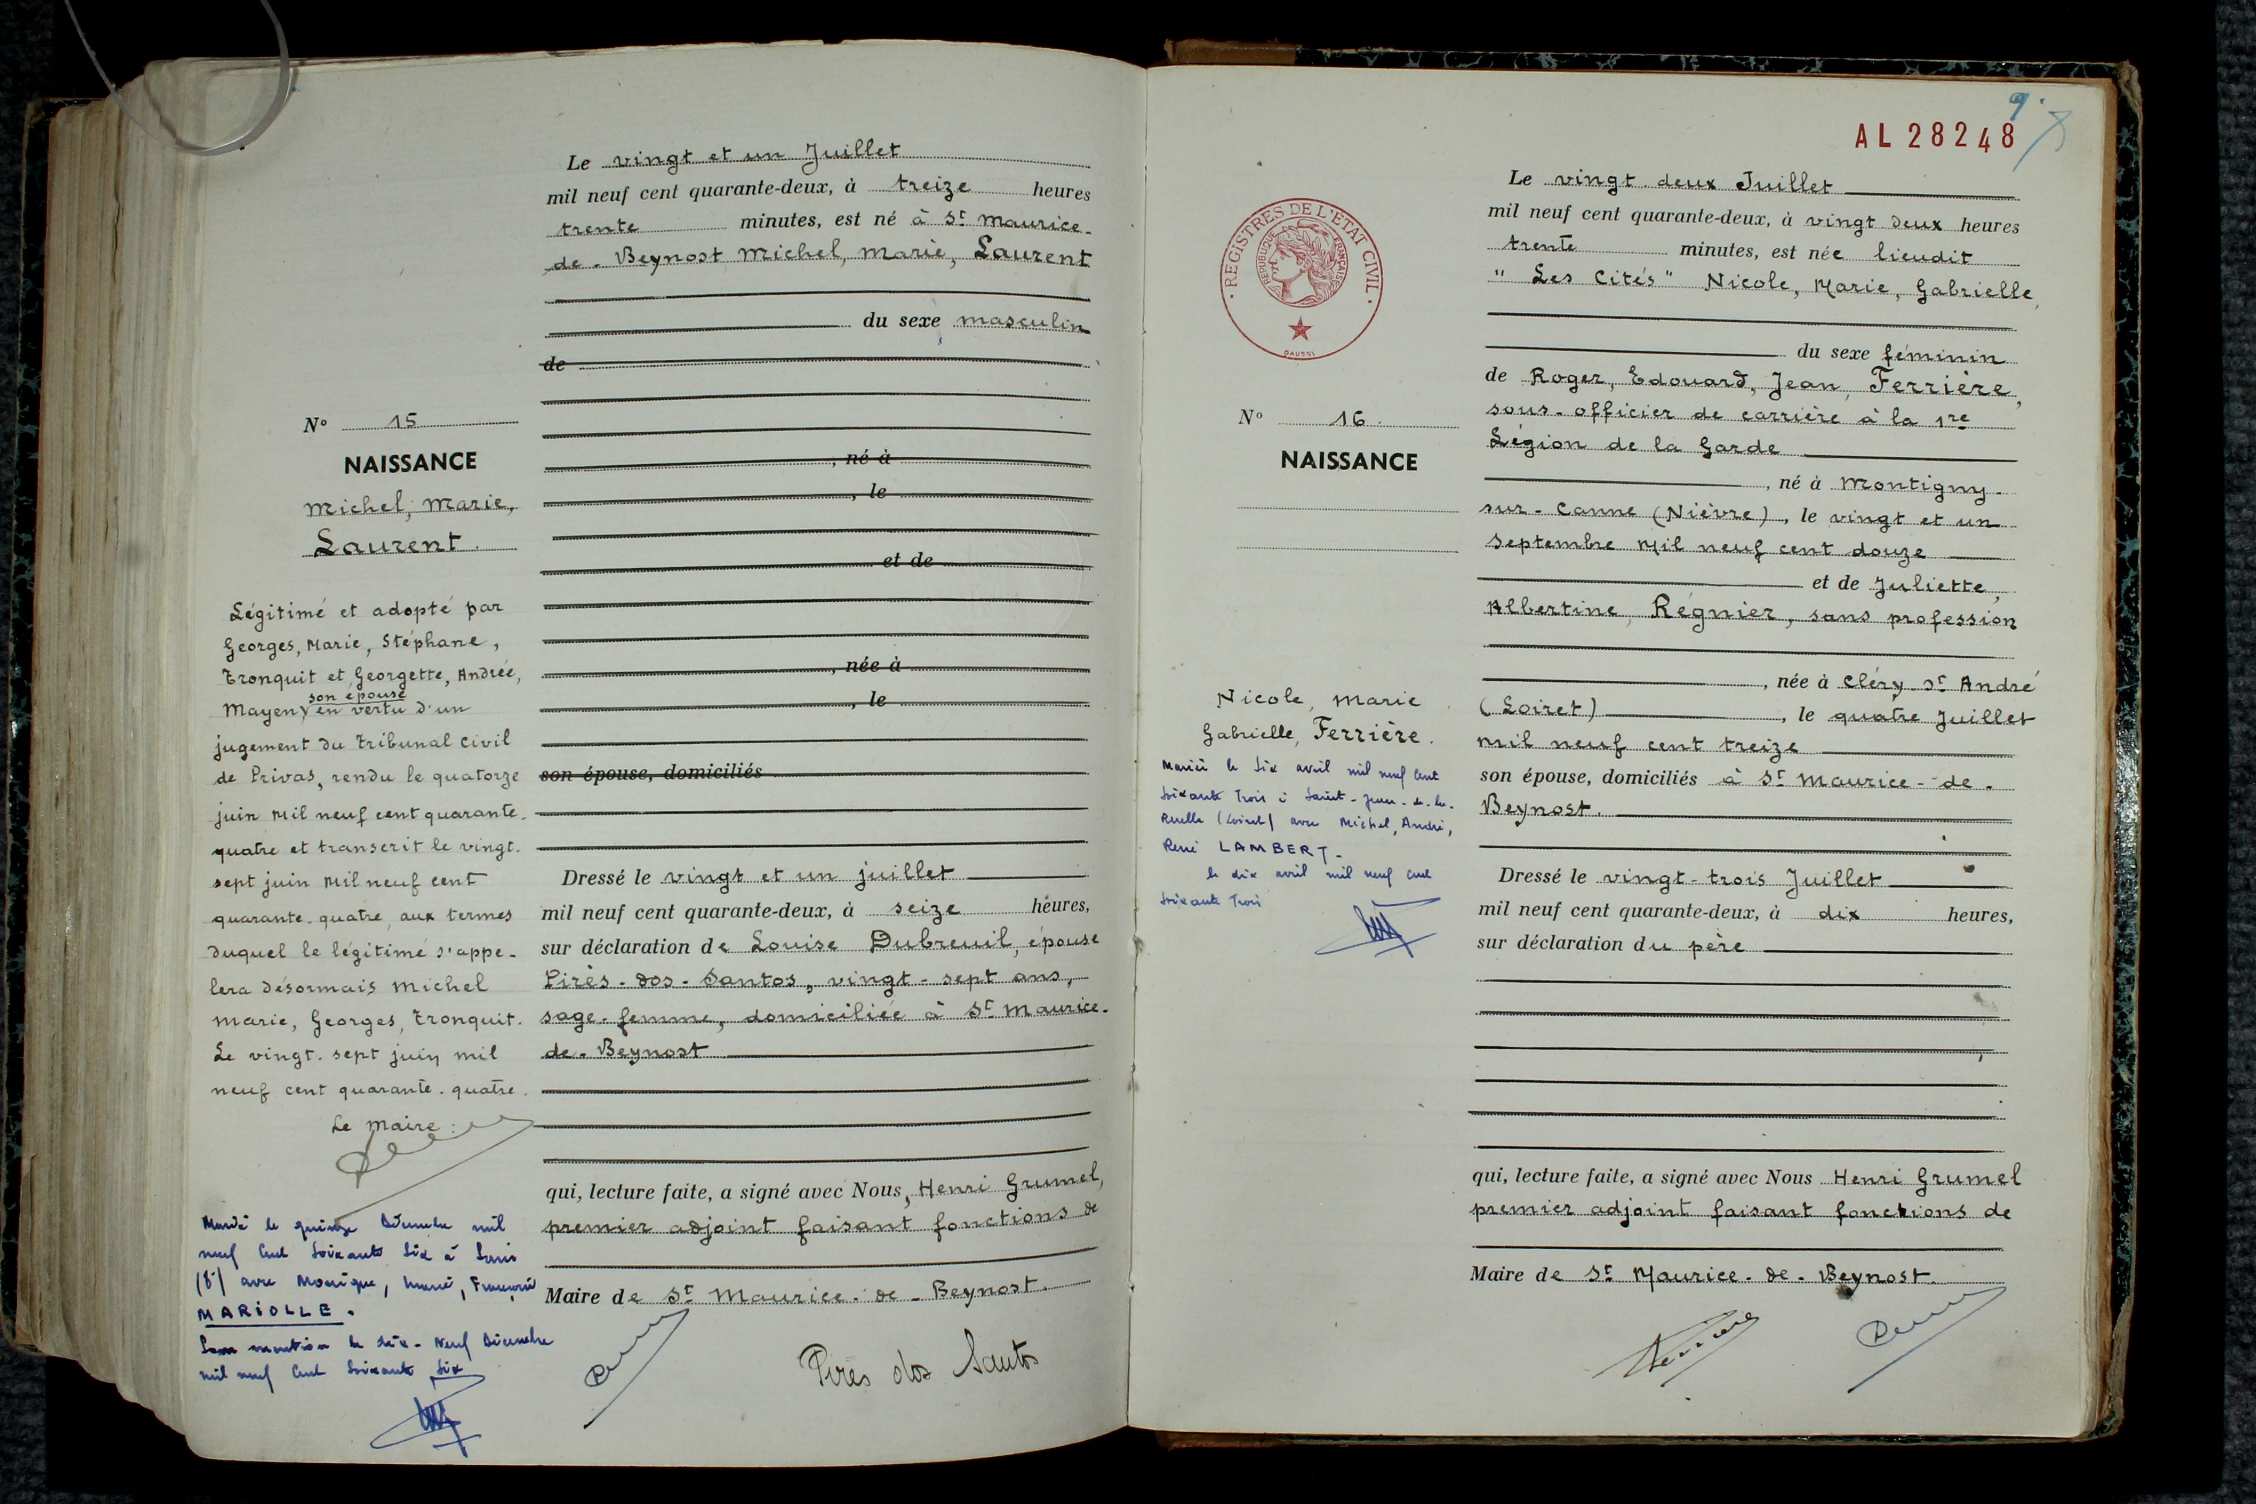 Le vingt et un Juillet
mil neuf cent quarante-deux, à treize heures
trente minutes, est né à St Maurice-
de-Beynost Michel, Marie, Laurent
du sexe masculin
de
, né à
, le
et de
, née à
, le
son épouse, domiciliés
Dressé le vingt et un juillet
mil neuf cent quarante-deux, à seize heures,
sur déclaration de Louise Dubreuil, épouse
Pirès-dos-Santos, vingt-sept ans,
sage-femme, domiciliée à St Maurice-
de-Beynost
qui, lecture faite, a signé avec Nous, Henri Grumel,
premier adjoint faisant fonctions de
Maire de St Maurice-de-Beynost.
Pires dos Santos
No 15
NAISSANCE
Michel, Marie,
Laurent.
Légitimé et adopté par
Georges, Marie, Stéphane,
Tronquit et Georgette, Andrée,
son épouse
Mayen, en vertu d'un
jugement du Tribunal Civil
de Privas, rendu le quatorze
juin Mil neuf cent quarante-
quatre et transcrit le vingt-
sept juin Mil neuf cent
quarante-quatre, aux termes
duquel le légitimé s'appe-
lera désormais Michel
Marie, Georges, Tronquit.
Le vingt-sept juin mil
neuf cent quarante-quatre.
Le Maire:
Marié le quinze Décembre mil
neuf cent soixante six à Paris
avec Monique,
MARIOLLE.
mention le dix-neuf Décembre
mil neuf cent soixante six
9
AL 28248
REGISTRES DE L'ETAT CIVIL
REPUBLIQUE FRANÇAISE
DAUSSI
Le vingt-deux Juillet
mil neuf cent quarante-deux, à vingt deux heures
trente minutes, est née lieudit
"Les Cités" Nicole, Marie, Gabrielle,
du sexe féminin
de Roger, Edouard, Jean, Ferrière,
sous-officier de carrière à la 1re
Légion de la Garde
, né à Montigny-
sur-Canne (Nièvre), le vingt et un
septembre Mil neuf cent douze
et de Juliette,
Albertine, Régnier, sans profession
, née à Cléry-St André
(Loiret), le quatre Juillet
mil neuf cent treize
son épouse, domiciliés à St Maurice-de-
Beynost.
Dressé le vingt-trois Juillet
mil neuf cent quarante-deux, à dix heures,
sur déclaration du père
qui, lecture faite, a signé avec Nous Henri Grumel
premier adjoint faisant fonctions de
Maire de St Maurice-de-Beynost.
No 16.
NAISSANCE
Nicole, Marie
Gabrielle, Ferrière.
Mariée le six avril mil neuf cent
soixante trois à Saint-Jean-de-la-
Ruelle (Loiret) avec Michel, André,
René LAMBERT.
le dix avril mil neuf cent
soixante trois